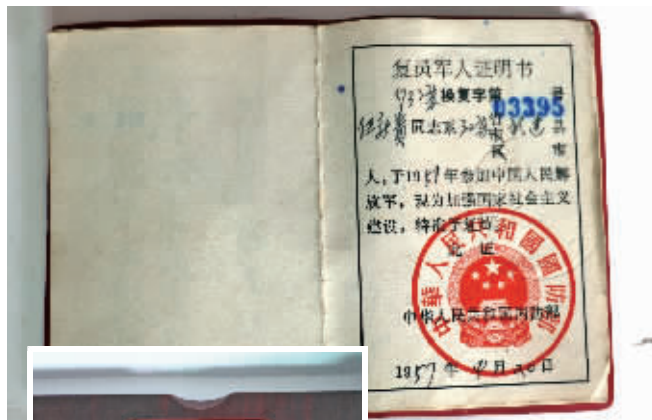 复员军人证明书
换复字第 号
03395
同志系 县 市
人，于1951年参加中国人民解
放军，现为加强国家社会主义
建设，特准予复员。
此证
中华人民共和国国防部
中華人民共和國國防部
1957年 月 日